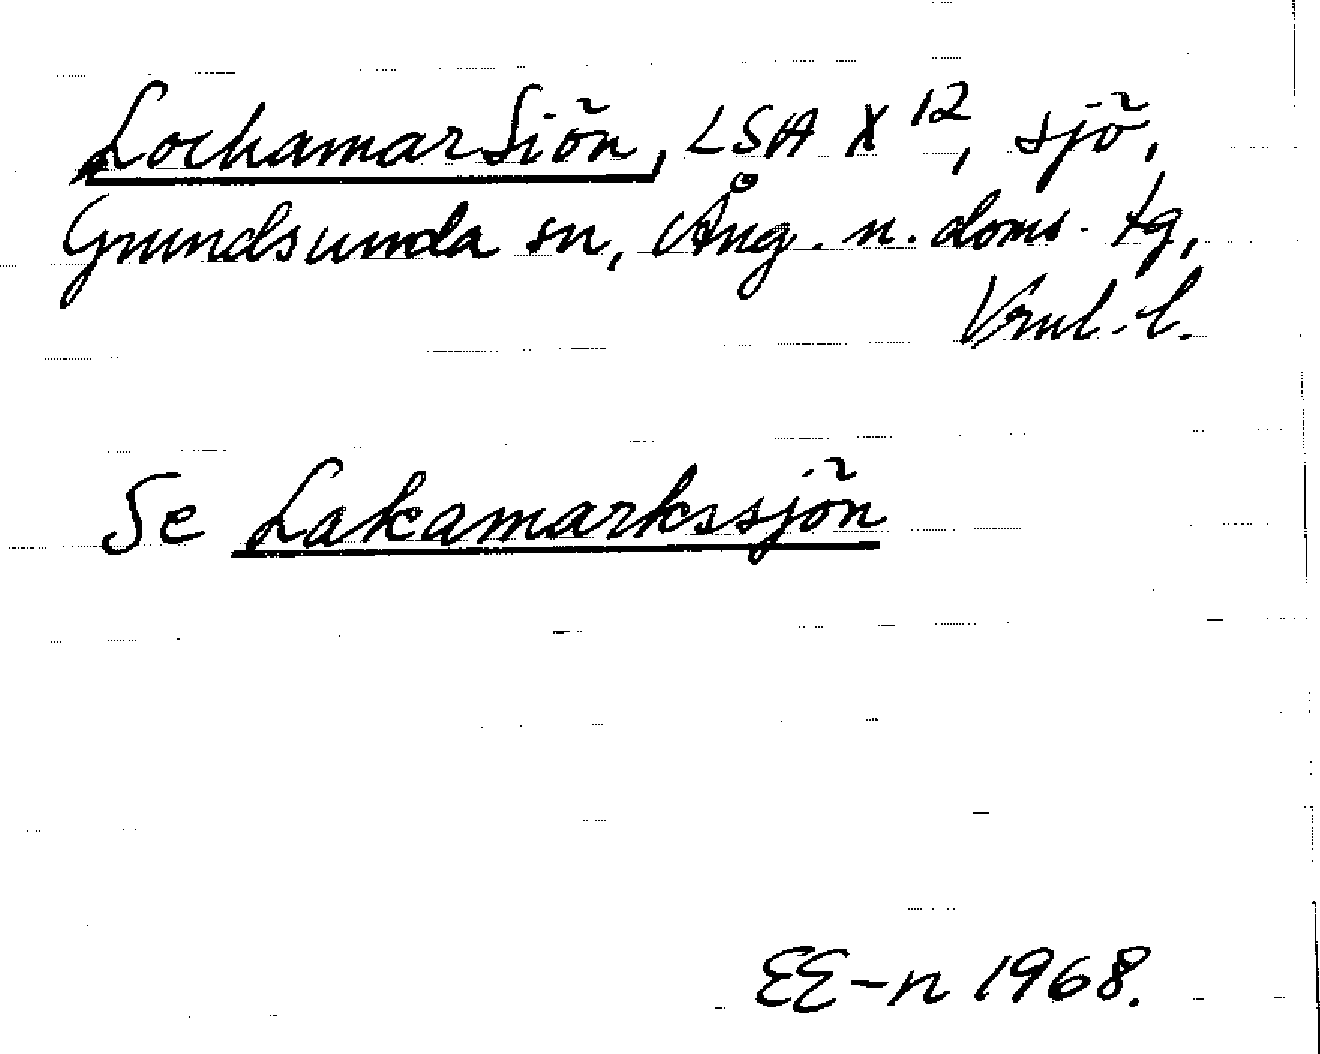 Lochamar Siön, LSA X 12, sjö,
Grundsunda sn, Ång. n. doms. tg,
Vnul. l.
Se Lakamarkssjön
EE-n 1968.